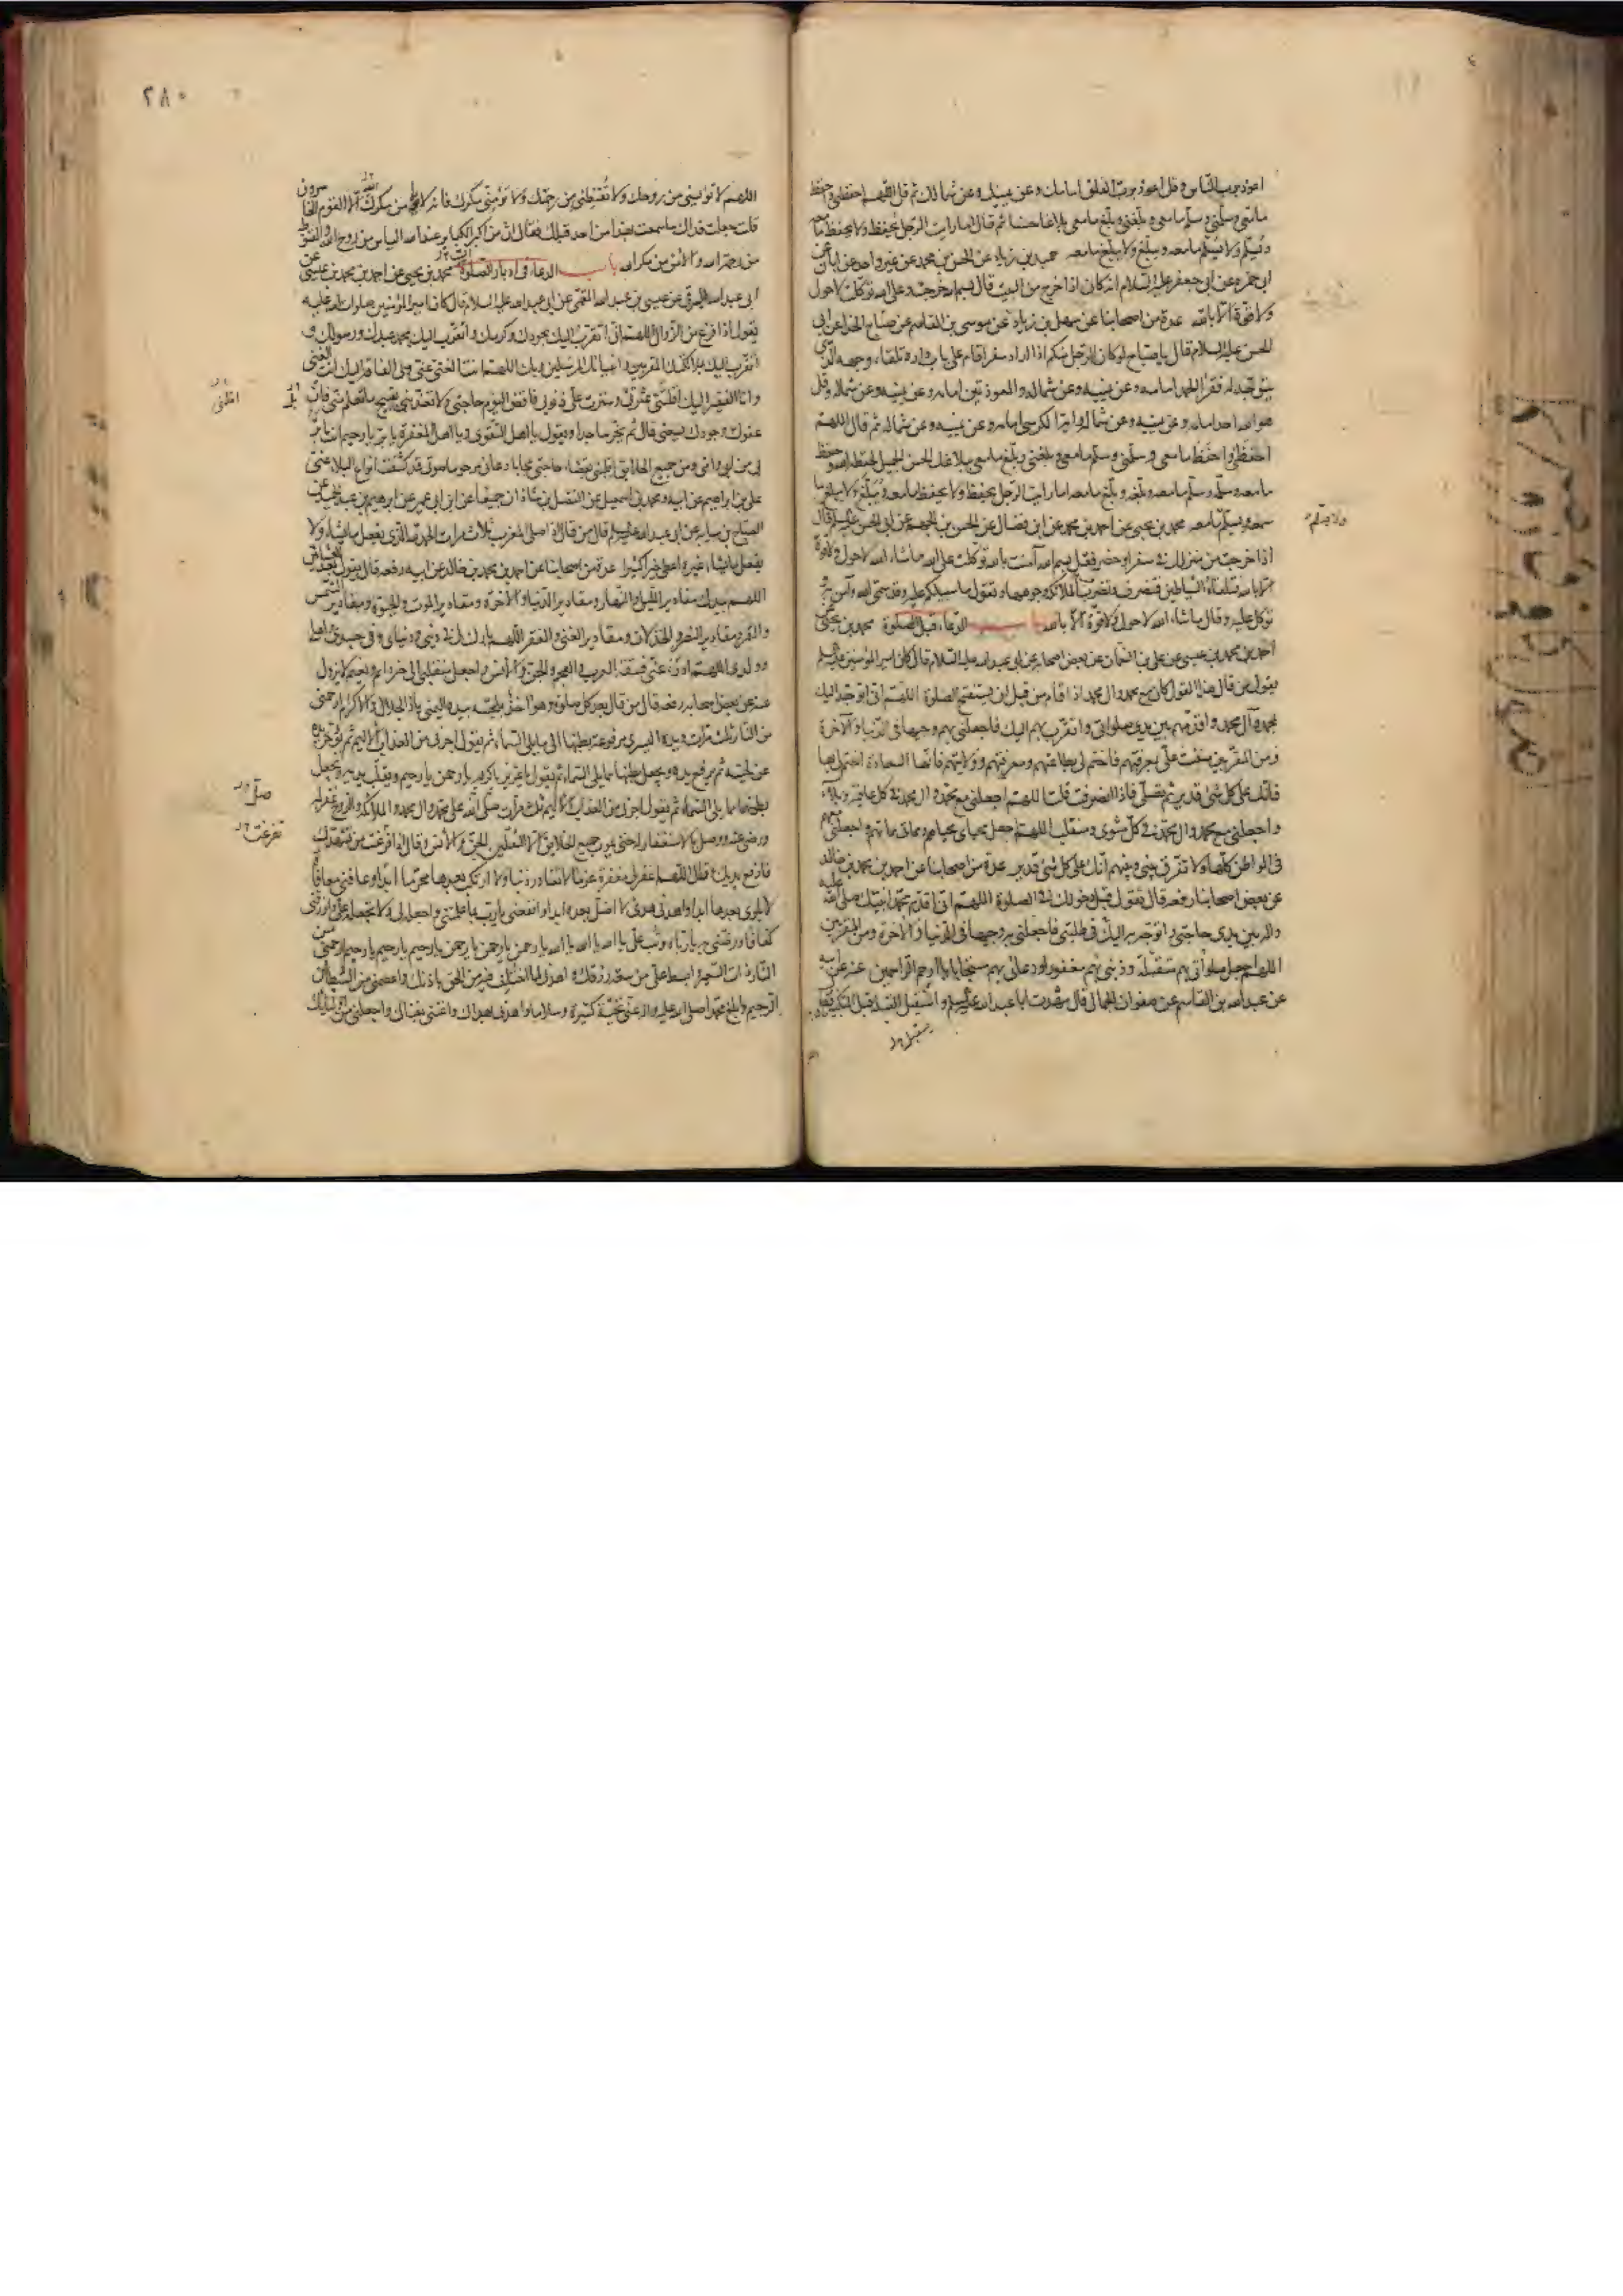 اعوذ برب الناس وقل اعوذ برب الفلق امامك وعن يمينك وعن شمالك ثم قل اللهم احفظنى واحفظ
مامعى وسلمنى وسلم مامعى وبلغنى وبلغ مامعى بلاغا حسنا ثم قال اما رايت الرجل يحفظ ولا يحفظ مامعه
ويسلم ولا يسلم مامعه ويبلغ ولا يبلغ مامعه حميد بن زياد عن الحسن بن محمد عن غير واحد عن ابان عن
ابى حمزه عن ابى جعفر عليه السلام انه كان اذا خرج من البيت قال بسم الله خرجت وعلى الله توكلت لا حول
ولا قوة الا بالله عدة من اصحابنا عن سهل بن زياد عن موسى بن القاسم عن صباح الحذا عن ابى
الحسن عليه السلام قال يا صباح لو كان الرجل منكم اذا اراد سفرا قام على باب داره تلقاء وجهه الذى
يتوجه له فقرا الحمد امامه وعن يمينه وعن شماله والمعوذتين امامه وعن يمينه وعن شماله وقل
هو الله احد امامه وعن يمينه وعن شماله واية الكرسى امامه وعن يمينه وعن شماله ثم قال اللهم
احفظنى واحفظ مامعى وسلمنى وسلم مامعى وبلغنى وبلغ مامعى ببلاغك الحسن الجميل لحفظه الله وحفظ
مامعه وسلمه وسلم مامعه وبلغه وبلغ مامعه اما رايت الرجل يحفظ ولا يحفظ مامعه ويبلغ ولا يبلغ ما
معه ويسلم مامعه محمد بن يحيى عن احمد بن محمد عن ابن فضال عن الحسن بن الجهم عن ابى الحسن عليه السلم قال
ولا يسلم
اذا خرجت من منزلك فى سفر او حضر فقل بسم الله آمنت بالله توكلت على الله ماشاء الله لا حول ولا قوة
الا بالله فتلقاه الشياطين فتنصرف وتضرب الملائكة وجوهها وتقول ما سبيلكم عليه وقد سمى الله وآمن به و
توكل عليه وقال ماشاء الله لا حول ولا قوة الا بالله باب الدعاء قبل الصلوة محمد بن يحيى عن
احمد بن محمد بن عيسى عن على بن النعمان عن بعض اصحابه عن ابى عبد الله عليه السلام قال كان امير المؤمنين عليه السلم
يقول من قال هذا القول كان مع محمد وال محمد اذا قام من قبل ان يستفتح الصلوة اللهم انى اتوجه اليك
بمحمد وآل محمد واقدمهم بين يدى صلواتى واتقرب بهم اليك فاجعلنى بهم وجيها فى الدنيا والآخرة
ومن المقربين مننت على بمعرفتهم فاختم لى بطاعتهم ومعرفتهم وولايتهم فانها السعادة اختم لى بها
فانك على كل شئ قدير ثم تصلى فاذا انصرفت قلت اللهم اجعلنى مع محمد وال محمد فى كل عافية وبلاء
واجعلنى مع محمد وال محمد فى كل مثوى ومنقلب اللهم اجعل محياى محياهم ومماتى مماتهم واجعلنى معهم
فى المواطن كلها ولا تفرق بينى وبينهم انك على كل شئ قدير عدة من اصحابنا عن احمد بن محمد بن خالد
عن بعض اصحابنا رفعه قال تقول قبل دخولك فى الصلوة اللهم انى اقدم محمدا نبيك صلى الله عليه
واله بين يدى حاجتى واتوجه به اليك فى طلبتى فاجعلنى به وجيها فى الدنيا والاخرة ومن المقربين
اللهم اجعل صلواتى بهم متقبلة وذنبى بهم مغفورا ودعائى بهم مستجابا يا ارحم الراحمين عنه عن ابيه
عن عبد الله بن القاسم عن صفوان الجمال قال شهدت ابا عبد الله عليه السلم واستقبل القبلة قبل التكبير فقال
يستقبل
٢٨٠
اللهم لا تؤيسنى من روحك ولا تقنطنى من رحمتك ولا تؤمنى مكرك فانه لا يامن مكر الله الا القوم الخاسرون
قلت جعلت فداك ماسمعت بهذا من احد قبلك فقال ان من اكبر الكباير عند الله الياس من روح الله والقنوط
من رحمة الله والامن من مكر الله باب الدعاء فى ادبار الصلوة محمد بن يحيى عن احمد بن محمد بن عيسى عن
ابى عبد الله البرقى عن عيسى بن عبد الله القمى عن ابى عبد الله عليه السلام قال كان امير المؤمنين صلوات الله عليه
يقول اذا فرغ من الزوال اللهم انى اتقرب اليك بجودك وكرمك واتقرب اليك بمحمد عبدك ورسولك و
اتقرب اليك بملائكتك المقربين وانبيائك المرسلين وبك اللهم انت الغنى عنى وبى الفاقة اليك انت الغنى
وانا الفقير اليك اقلتنى عثرتى وسترت على ذنوبى فاقض اليوم حاجتى ولا تعذبنى بقبيح ما تعلم منى فان
عفوك وجودك يسعنى قال ثم يخر ساجدا ويقول يا اهل التقوى ويا اهل المغفرة يا بر يا رحيم انت ابر
بى من ابى وامى ومن جميع الخلايق اقلبنى بقضاء حاجتى مجابا دعائى مرحوما صوتى قد كشفت انواع البلاء عنى
على بن ابراهيم عن ابيه ومحمد بن اسمعيل عن الفضل بن شاذان جميعا عن ابن ابى عمير عن ابراهيم بن عبد الحميد عن
الصباح بن سيابه عن ابى عبد الله عليه السلم قال من قال اذا صلى المغرب ثلاث مرات الحمد لله الذى يفعل مايشاء ولا
يفعل مايشاء غيره اعطى خيرا كثيرا عدة من اصحابنا عن احمد بن محمد بن خالد عن ابيه رفعه قال يقول بعد العشائين
اللهم بيدك مقادير الليل والنهار ومقادير الدنيا والاخرة ومقادير الموت والحيوة ومقادير الشمس
والقمر ومقادير النصر والخذلان ومقادير الغنى والفقر اللهم بارك لى فى دينى ودنياى وفى جسدى واهلى
وولدى اللهم ادرء عنى فسقة العرب والعجم والجن والانس واجعل منقلبى الى خير دائم ونعيم لا يزول
عنه عن بعض اصحابه رفعه قال من قال بعد كل صلوة وهو آخذ بلحيته بيده اليمنى يا ذا الجلال والاكرام ارحمنى
من النار ثلث مرات ويده اليسرى مرفوعة بطنها الى مايلى السماء ثم يقول اجرنى من العذاب الاليم ثم يؤخر يده
عن لحيته ثم يرفع يده ويجعل بطنها مما يلى السماء ثم يقول يا عزيز يا كريم يا رحمن يا رحيم ويقلب يديه ويجعل
بطونها مما يلى السماء ثم يقول اجرنى من العذاب الاليم ثلث مرات صلى الله على محمد وال محمد والملائكة والروح غفر له
صل
ورضى عنه ووصل بالاستغفار له حتى يموت جميع الخلايق الا الثقلين الجن والانس وقال اذا فرغت من تشهدك
تفرغت
فارفع يديك وقل اللهم اغفر لى مغفرة عزما لا تغادر ذنبا ولا ارتكب بعدها محرما ابدا وعافنى معافاة
لا بلوى بعدها ابدا واهدنى هدى لا اضل بعده ابدا وانفعنى يا رب بما علمتنى واجعله لى ولا تجعله على وارزقنى
كفافا ورضنى به يا رباه وتب على يا الله يا الله يا الله يا رحمن يا رحمن يا رحمن يا رحيم يا رحيم يا رحيم ارحمنى من
النار ذات السعير وابسط على من سعة رزقك واهدنى لما اختلف فيه من الحق باذنك واعصمنى من الشيطان
الرجيم وابلغ محمدا صلى الله عليه واله عنى تحية كثيرة وسلاما واهدنى بهداك واغننى بغناك واجعلنى من اوليائك